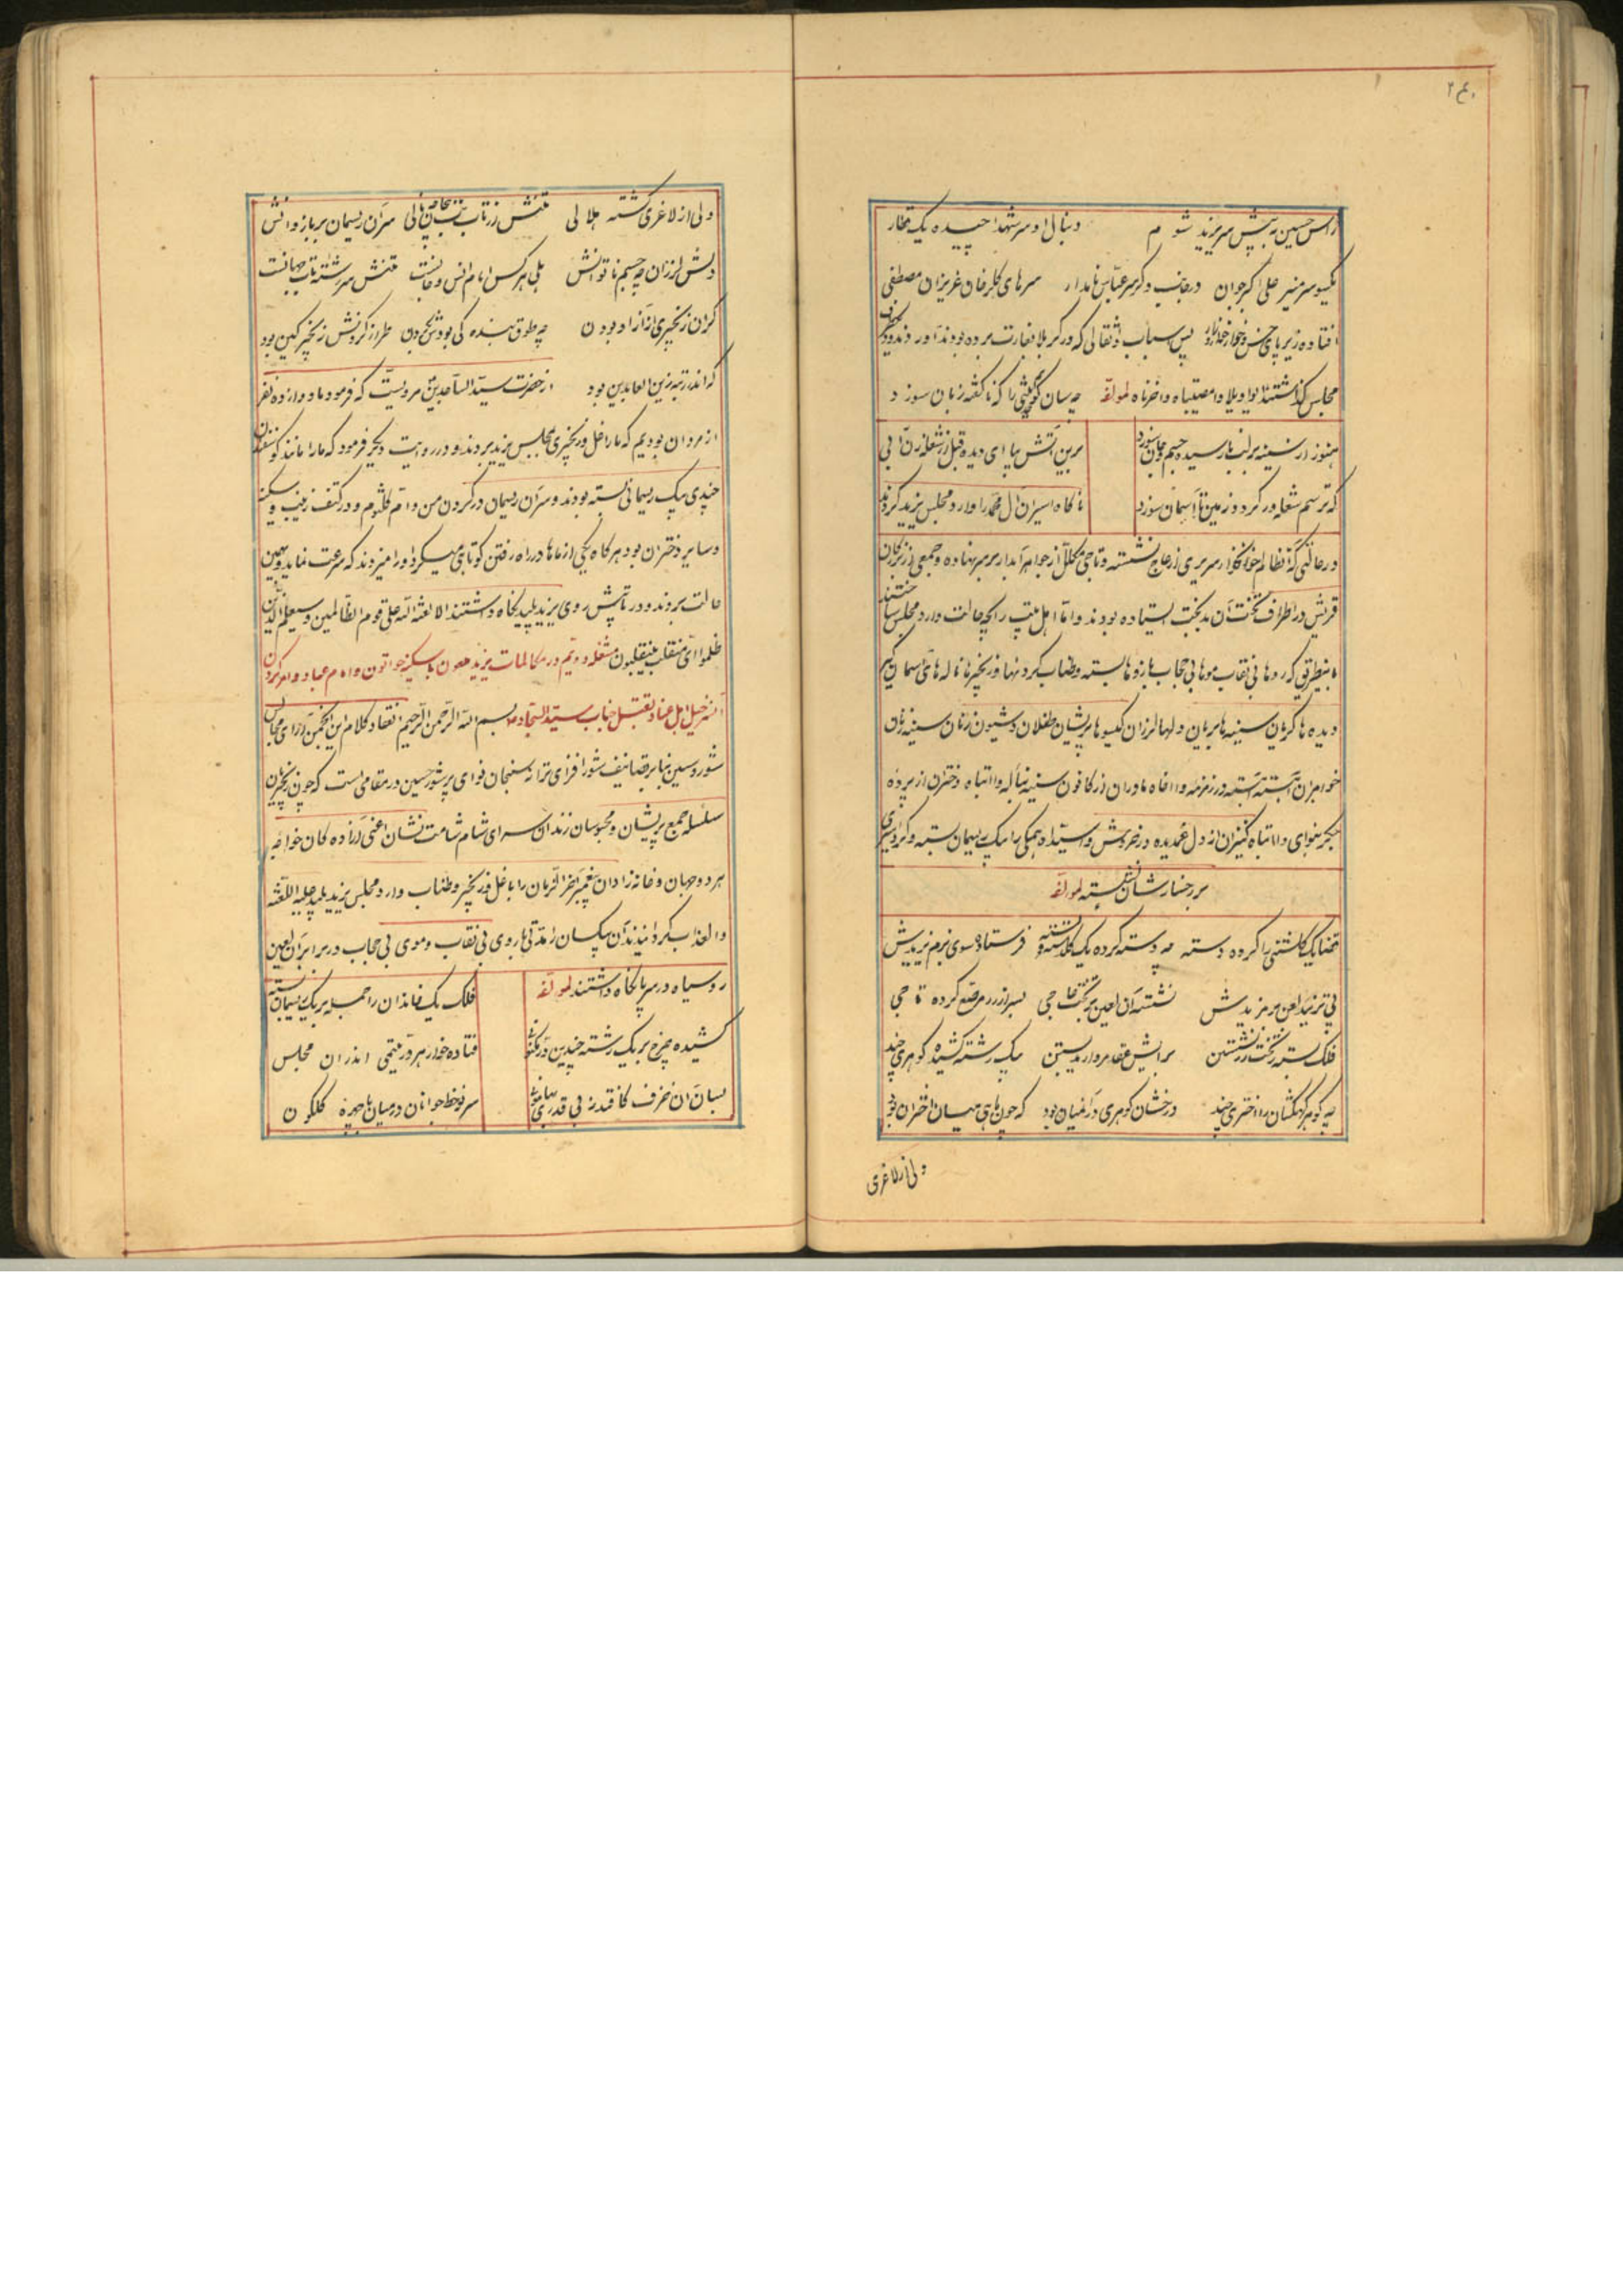 ۲۴۰
راس حسین به پیش سر یزید شوم دنبال او سر شهدا چیده یک قطار
یکسو سر منیر علی اکبر جوان در جانب دگر سر عباس نامدار سرهای گلرخان عزیزان مصطفی
افتاده زیر پای خس و خوار پس اسباب و اثقالی که در کربلا بغارت برده بودند آوردند و در
مجلس گذاشتند واویلا وامصیبتاه واحزناه لمولفه چه سان گویم را که ناگفته زبان سوزد
هنوز از سینه بر لب نارسیده جسم و جان سوزد برین آتش بیا ای دیده قبل از شعله زن آبی
که ترسم شعله ور گردد زمین تا آسمان سوزد ناگاه اسیران آل محمد را وارد مجلس یزید کردند
در حالتی که آن ظالم خونخوار سریری از عاج نشسته و تاجی مکلل از جواهر آبدار بر سر نهاده و جمعی از بزرگان
قریش در اطراف تخت آن بدبخت ایستاده بودند و اما اهل بیت را بچه حالت وارد مجلس ساختند
باینطریق که روها بی نقاب موها بی حجاب بازوها بسته و طناب گردنها و زنجیرها ناله های آسمان گیر
دیده ها گریان سینه ها بریان و لبها لرزان گیسوها پریشان طفلان در شیون زنان سینه زنان
خواهران آهسته آهسته در زمزمه وااخاه مادران از کانون سینه بناله واابناه دختران از پرده
جگر بنوای واابتاه کنیزان از دل غمدیده در خروش واسیداه همگی را بیک ریسمان بسته و گرد اسیری
بر رخسارشان نشسته لمولفه
قضا یک گلشنی را کرده دسته چه دسته کرده یک گلدسته فرستاده سوی بزم یزیدش
پی تزیید لعن و مزیدش نشسته آن لعین بر تخت عاجی بسر از زر مرصع کرده تاجی
فلک بسته بر تخت زر نشستن برایش عقد مروارید بستن بیک رشته کشیده گوهری چند
چه گوهر کهکشان را اختری چند درخشان گوهری در آنمیان بود که چون ماهی میان اختران بود
ولی از لاغری
ولی از لاغری گشته هلالی تنش در تاب تب بی جان و خالی سر آن ریسمان بر بازوانش
دلش لرزان چه جسم ناتوانش بلی هر کس امام انس و جانست تنش سر رشته تاب جهانست
گران زنجیری از آزاد بودن چه طوق بنده کی بودش بگردن طراز گردنش زنجیر کین بود
که اندر رتبه زین العابدین بود از حضرت سید الساجدین مرویست که فرمود ما دوازده نفر
از مردان بودیم که ما را غل و زنجیری بمجلس یزید بردند و در روایت دیگر فرمود که ما را مانند گوسفندان
چندی بیک ریسمانی بسته بودند و سر آن ریسمان در گردن من و ام کلثوم و در کتف زینب و سکینه
و سایر دختران بود هر گاه یکی از ماها در راه رفتن کوتاهی میکرد او را میزدند که سرعت نماید و بهمین
حالت بردند و در پیش روی یزید پلید نگاه داشتند الا لعنة الله علی قوم الظالمین و سیعلم الذین
ظلموا ای منقلب ینقلبون مشغله دویم در مکالمات یزید ملعون با سکینه خواتون و امام عباد و امر کردن
آن سرخیل اهل عناد بقتل جناب سید السجاد بسم الله الرحمن الرحیم انعقاد کلام این انجمن آرای مجالس
شور و سین بنابر تصانیف شورافزای ترانه سنجان نوای پرشور حسین در مقامی است که چون زنجیریان
سلسله جمع پریشان و محبوسان زندان سرای شام شامت نشان اعنی آزاده کان خواجه
هر دو جهان و خانه زادان پیغمبر آخر الزمان را با غل و زنجیر و طناب وارد مجلس یزید پلید علیه اللعنه
والعذاب گردانیدند آن بیکسان را مدتی با روی بی نقاب و موی بی حجاب در برابر آن لعین
روسیاه در سرپا نگاه داشتند لمولفه فلک یک خاندان را جمله بر یک ریسمان بسته
کشیده چرخ بر یک رشته چندین در مکنون فتاده خوار هر در یتیمی اندران مجلس
بسان آن خزف کافتد ز بی قدری سر نوخط جوانان در میان با چهره گلگون